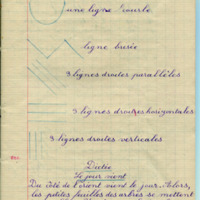 une ligne courbe
ligne brisée
3 lignes droites parallèles
3 lignes droites horizontales
3 lignes droites verticales
Dictée
Le jour vient
Du côté de l'orient vient le jour. Alors,
les petites feuilles des arbres se mettent